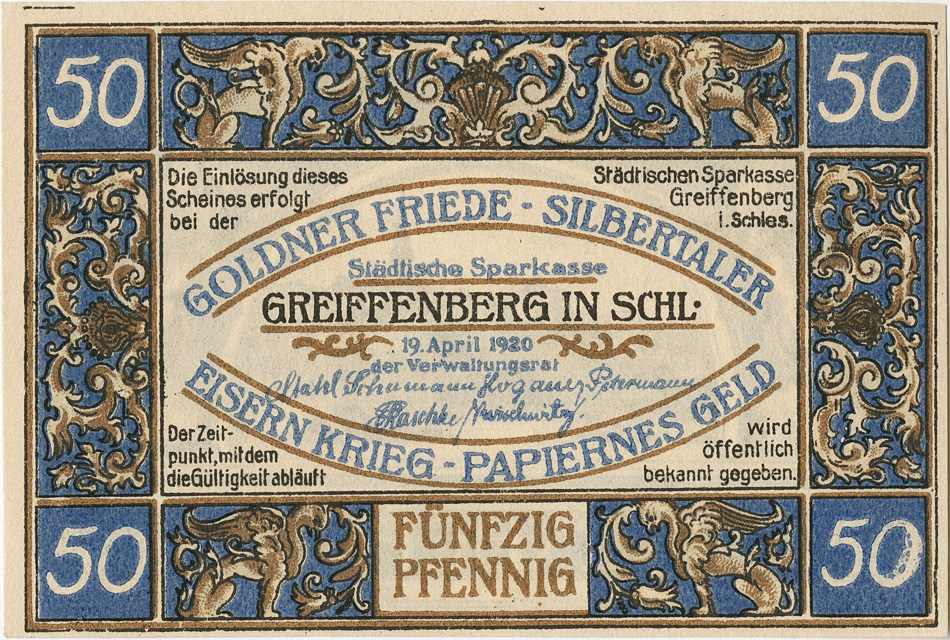 50
50
Die Einlösung dieses
Scheines erfolgt
bei der
Städtischen Sparkasse
Greiffenberg
i. Schles.
GOLDNER FRIEDE - SILBERTALER
Städtische Sparkasse
GREIFFENBERG IN SCHL.
19. April 1920
der Verwaltungsrat
EISERN KRIEG - PAPIERNES GELD
Der Zeit-
punkt, mit dem
die Gültigkeit abläuft
wird
öffentlich
bekannt gegeben.
50
FÜNFZIG
PFENNIG
50